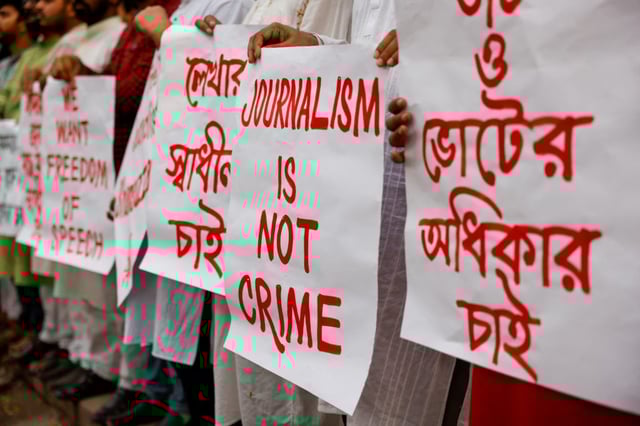 WE
WANT
FREEDOM
OF
SPEECH
লেখার
স্বাধীন
চাই
JOURNALISM
IS
NOT
CRIME
ও
ভোটের
অধিকার
চাই